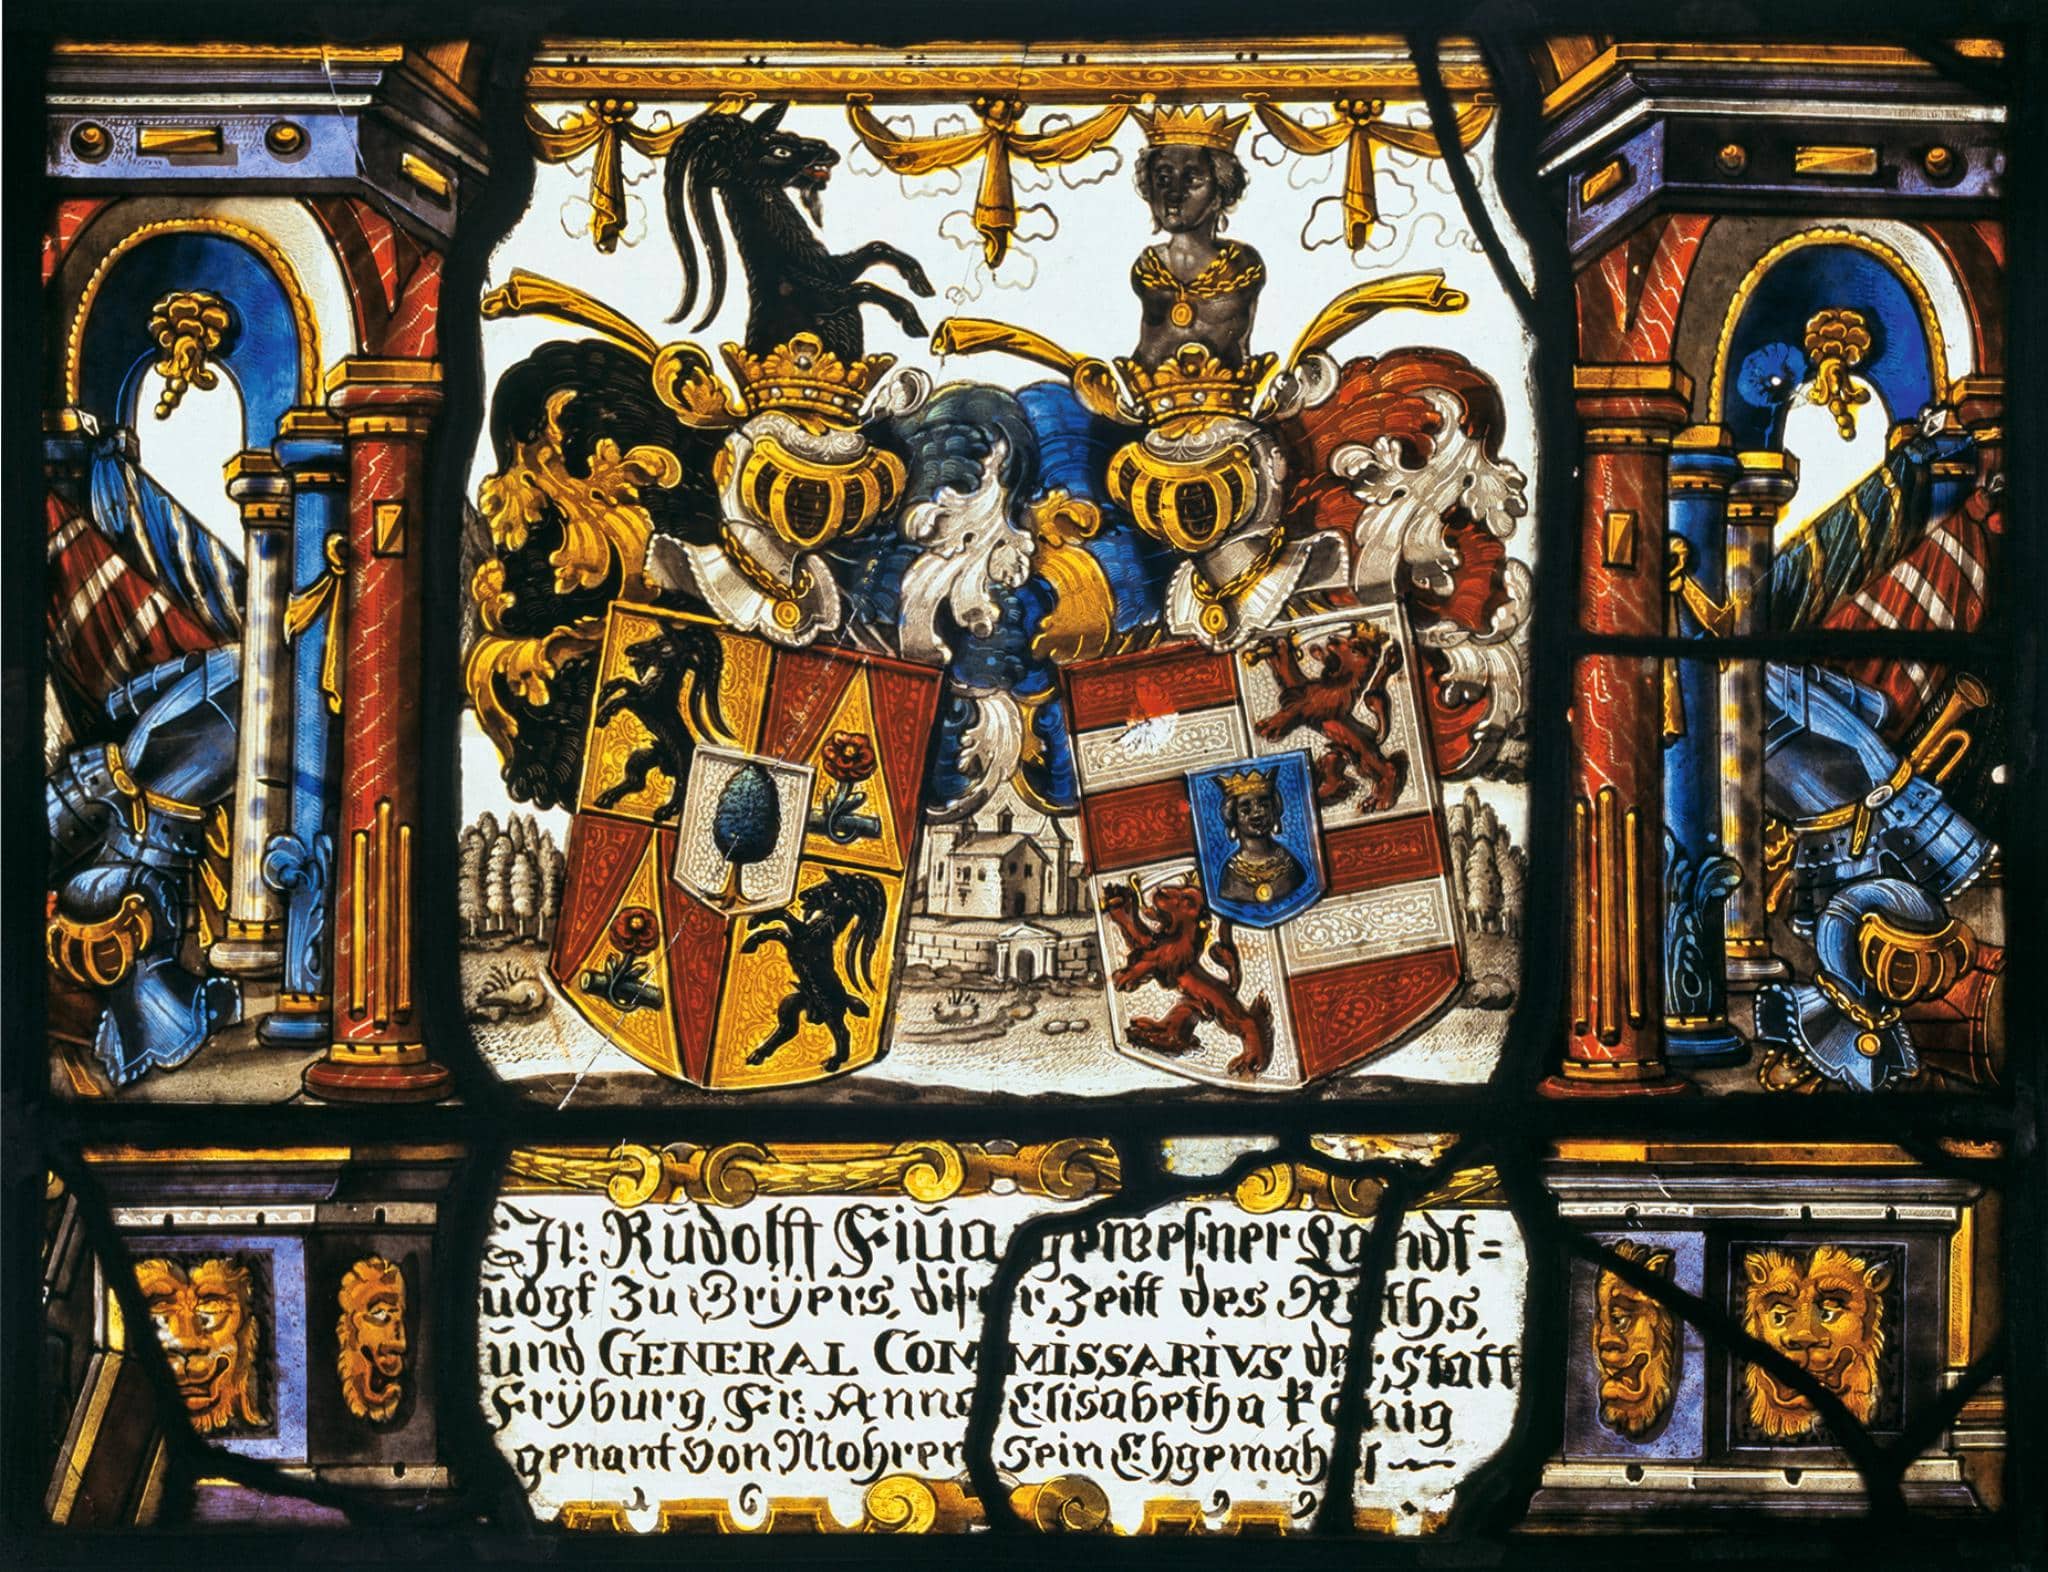 Jr: Růdolff Fiůa gewesner Landt=
ůogt Zu Grÿers, diser Zeitt des Raths,
ůnd GENERAL COMMISSARIVS der Statt
Frÿburg, Fr: Anna Elisabetha König
genant von Mohren sein Ehgemahel
1 6